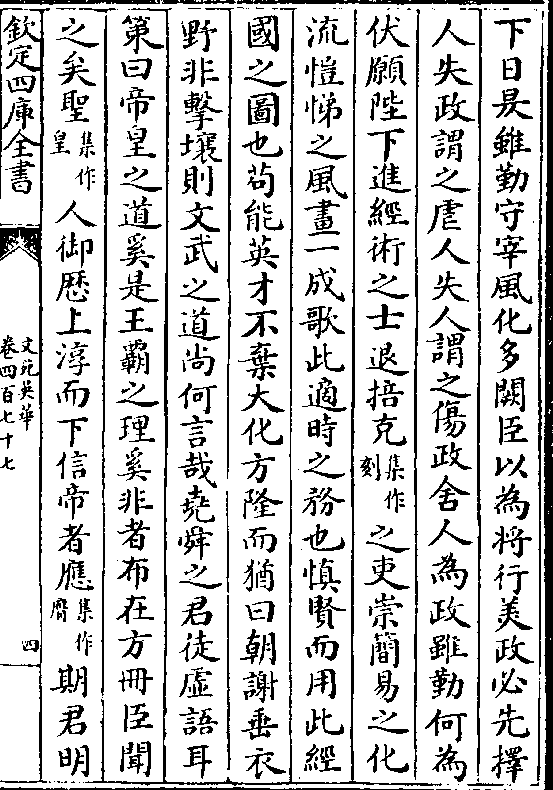 下日昃雖勤守宰風化多闕臣以為將行美政必先擇
人失政謂之虐人失人謂之傷政舍人為政雖勤何為
伏願陛下進經術之士退掊克集作刻之吏崇簡易之化
流愷悌之風畫一成歌此適時之務也慎賢而用此經
國之圖也茍能英才不棄大化方隆而猶曰朝謝垂衣
野非擊壤則文武之道尚何言哉堯舜之君徒虛語耳
第曰帝皇之道奚是王霸之理奚非者布在方冊臣聞
之矣聖集作皇人御歷上淳而下信帝者應集作膺期君明
欽定四庫全書
文苑英華
卷四百七十七
四